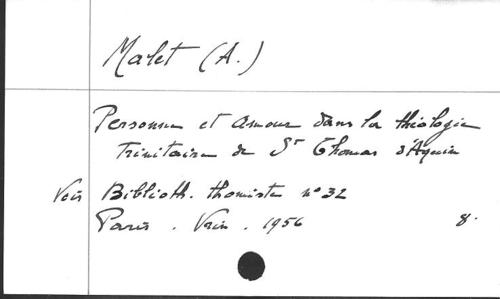 Malet (A.)
Personne et Amour dans la théologie
Trinitaire de St Thomas d'Aquin
Voir Biblioth. thomiste n° 32
Paris . Vrin . 1956 8.